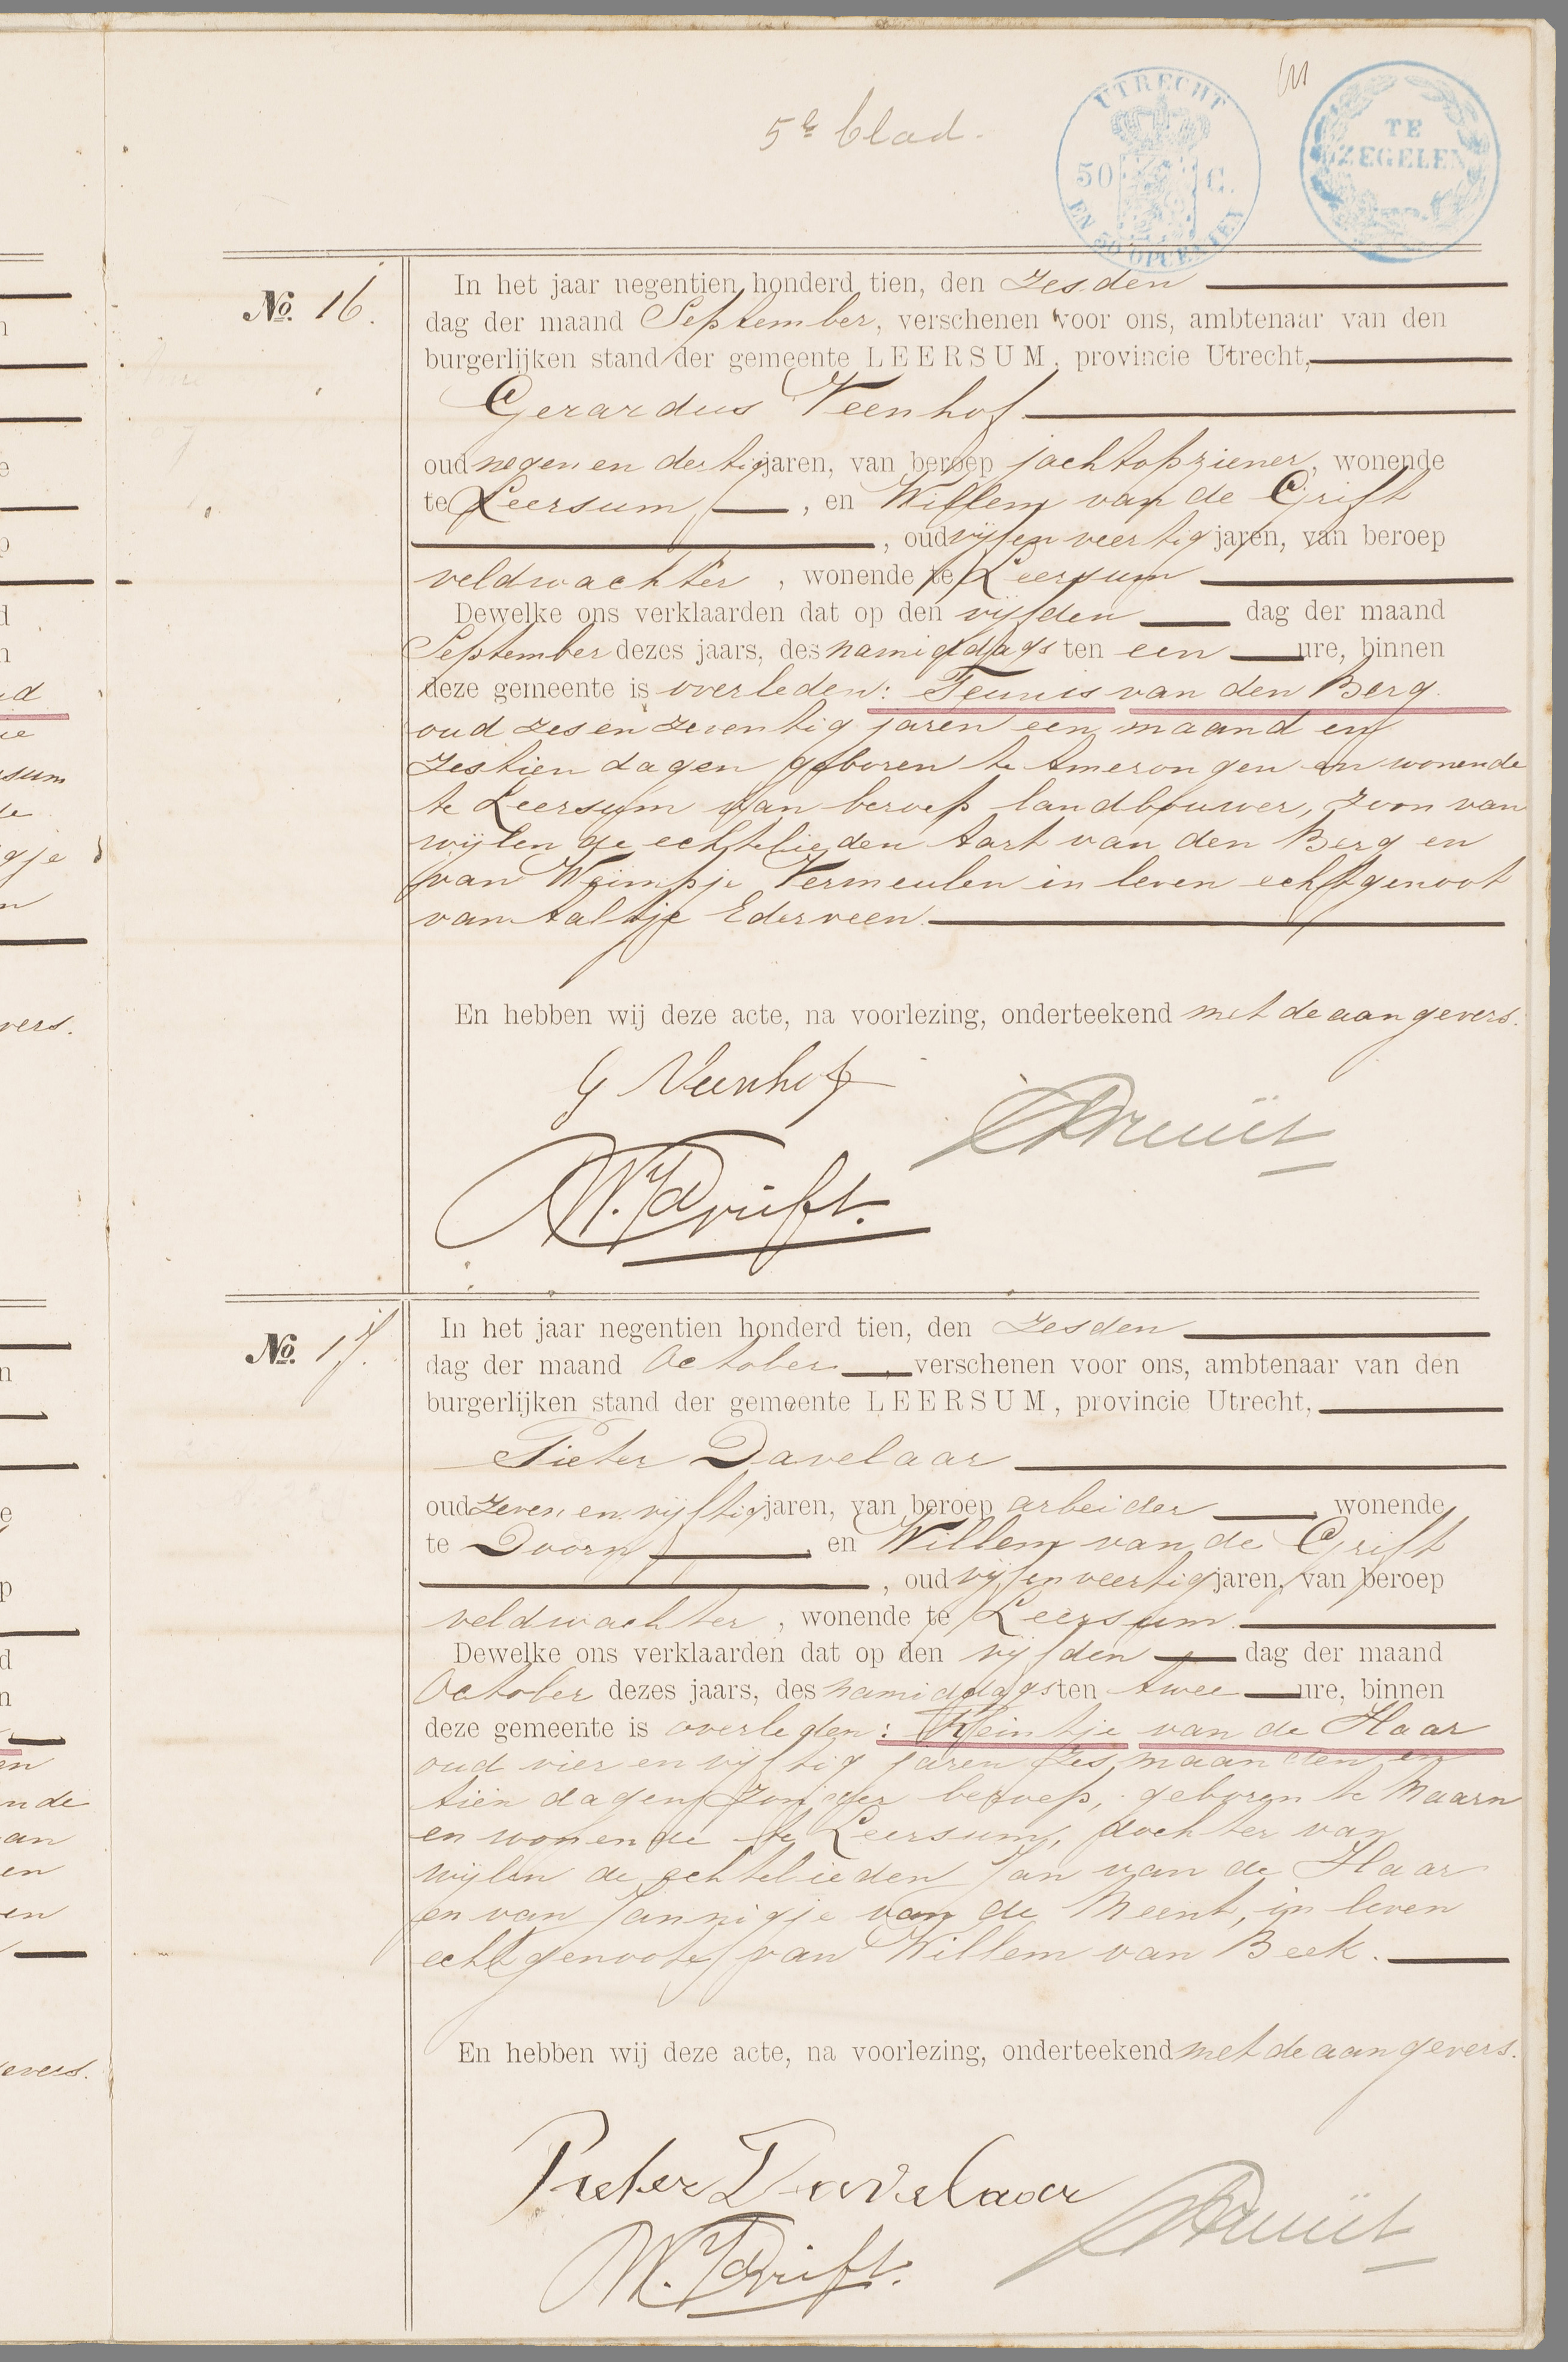 5e blad.
UTRECHT
50 C.
EN 50 OPCENTEN
TE
ZEGELEN
No. 16.
In het jaar negentien honderd tien, den zesden
dag der maand September, verschenen voor ons, ambtenaar van den
burgerlijken stand der gemeente LEERSUM, provincie Utrecht,
Gerardus Veenhof
oud negen en dertig jaren, van beroep jachtopziener, wonende
te Leersum, en Willem van de Grift
, oud vijf en veertig jaren, van beroep
veldwachter, wonende te Leersum
Dewelke ons verklaarden dat op den vijfden dag der maand
September dezes jaars, des namiddags ten een ure, binnen
deze gemeente is overleden: Teunis van den Berg
oud zes en zeventig jaren een maand en
zestien dagen geboren te Amerongen en wonende
te Leersum van beroep landbouwer, zoon van
wijlen de echtelieden Aart van den Berg en
van Weimpje Vermeulen in leven echtgenoot
van Aaltje Ederveen.
En hebben wij deze acte, na voorlezing, onderteekend met de aangevers.
G Veenhof
W. vd Grift.
No. 17.
In het jaar negentien honderd tien, den zesden
dag der maand October, verschenen voor ons, ambtenaar van den
burgerlijken stand der gemeente LEERSUM, provincie Utrecht,
Pieter Davelaar
oud zeven en vijftig jaren, van beroep arbeider, wonende
te Doorn, en Willem van de Grift
, oud vijf en veertig jaren, van beroep
veldwachter, wonende te Leersum.
Dewelke ons verklaarden dat op den vijfden dag der maand
October dezes jaars, des namiddags ten twee ure, binnen
deze gemeente is overleden: Heintje van de Haar
oud vier en vijftig jaren zes maanden en
tien dagen zonder beroep, geboren te Maarn
en wonende te Leersum, dochter van
wijlen de echtelieden Jan van de Haar
en van Jannigje van de Meent, in leven
echtgenoote van Willem van Beek.
En hebben wij deze acte, na voorlezing, onderteekend met de aangevers.
Pieter Davelaar
W. vd Grift.